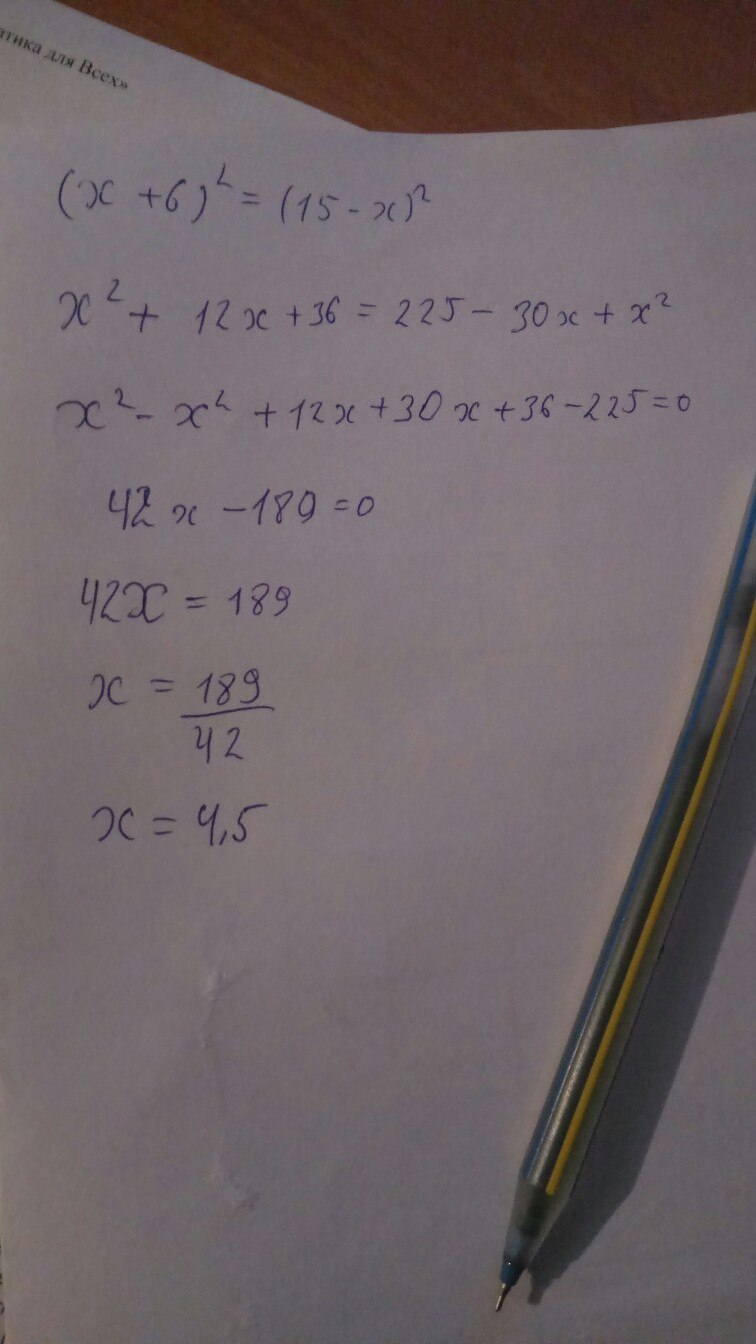 для Всех»
(x + 6)² = (15 - x)²
x² + 12x + 36 = 225 - 30x + x²
x² - x² + 12x + 30x + 36 - 225 = 0
42x - 189 = 0
42x = 189
x = 189/42
x = 4,5